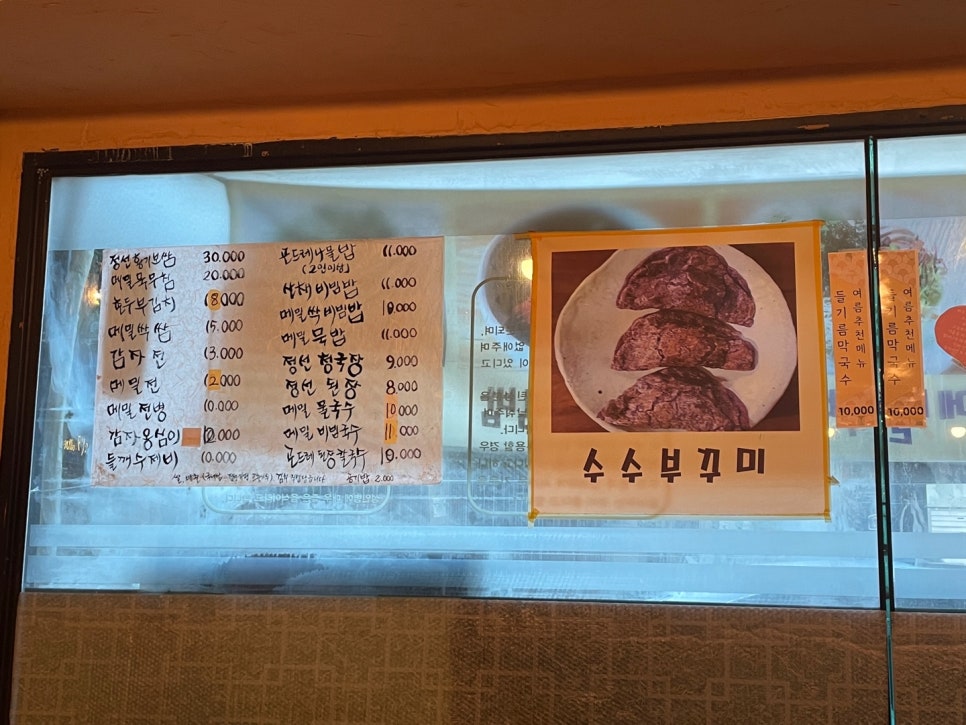 정선황기보쌈 30.000
메밀묵무침 20.000
촌두부김치 18.000
메밀싹쌈 15.000
감자전 13.000
메밀전 12.000
메밀전병 10.000
감자옹심이 12.000
들깨수제비 10.000
곤드레나물밥 11.000
(2인이상)
산채비빔밥 11.000
메밀싹비빔밥 10.000
메밀묵밥 11.000
정선청국장 9.000
정선된장 8.000
메밀묵국수 10.000
메밀비빔국수 11.000
곤드레된장칼국수 10.000
공기밥 2.000
수수부꾸미
여름추천메뉴
들기름막국수
10,000
여름추천메뉴
들기름막국수
10,000